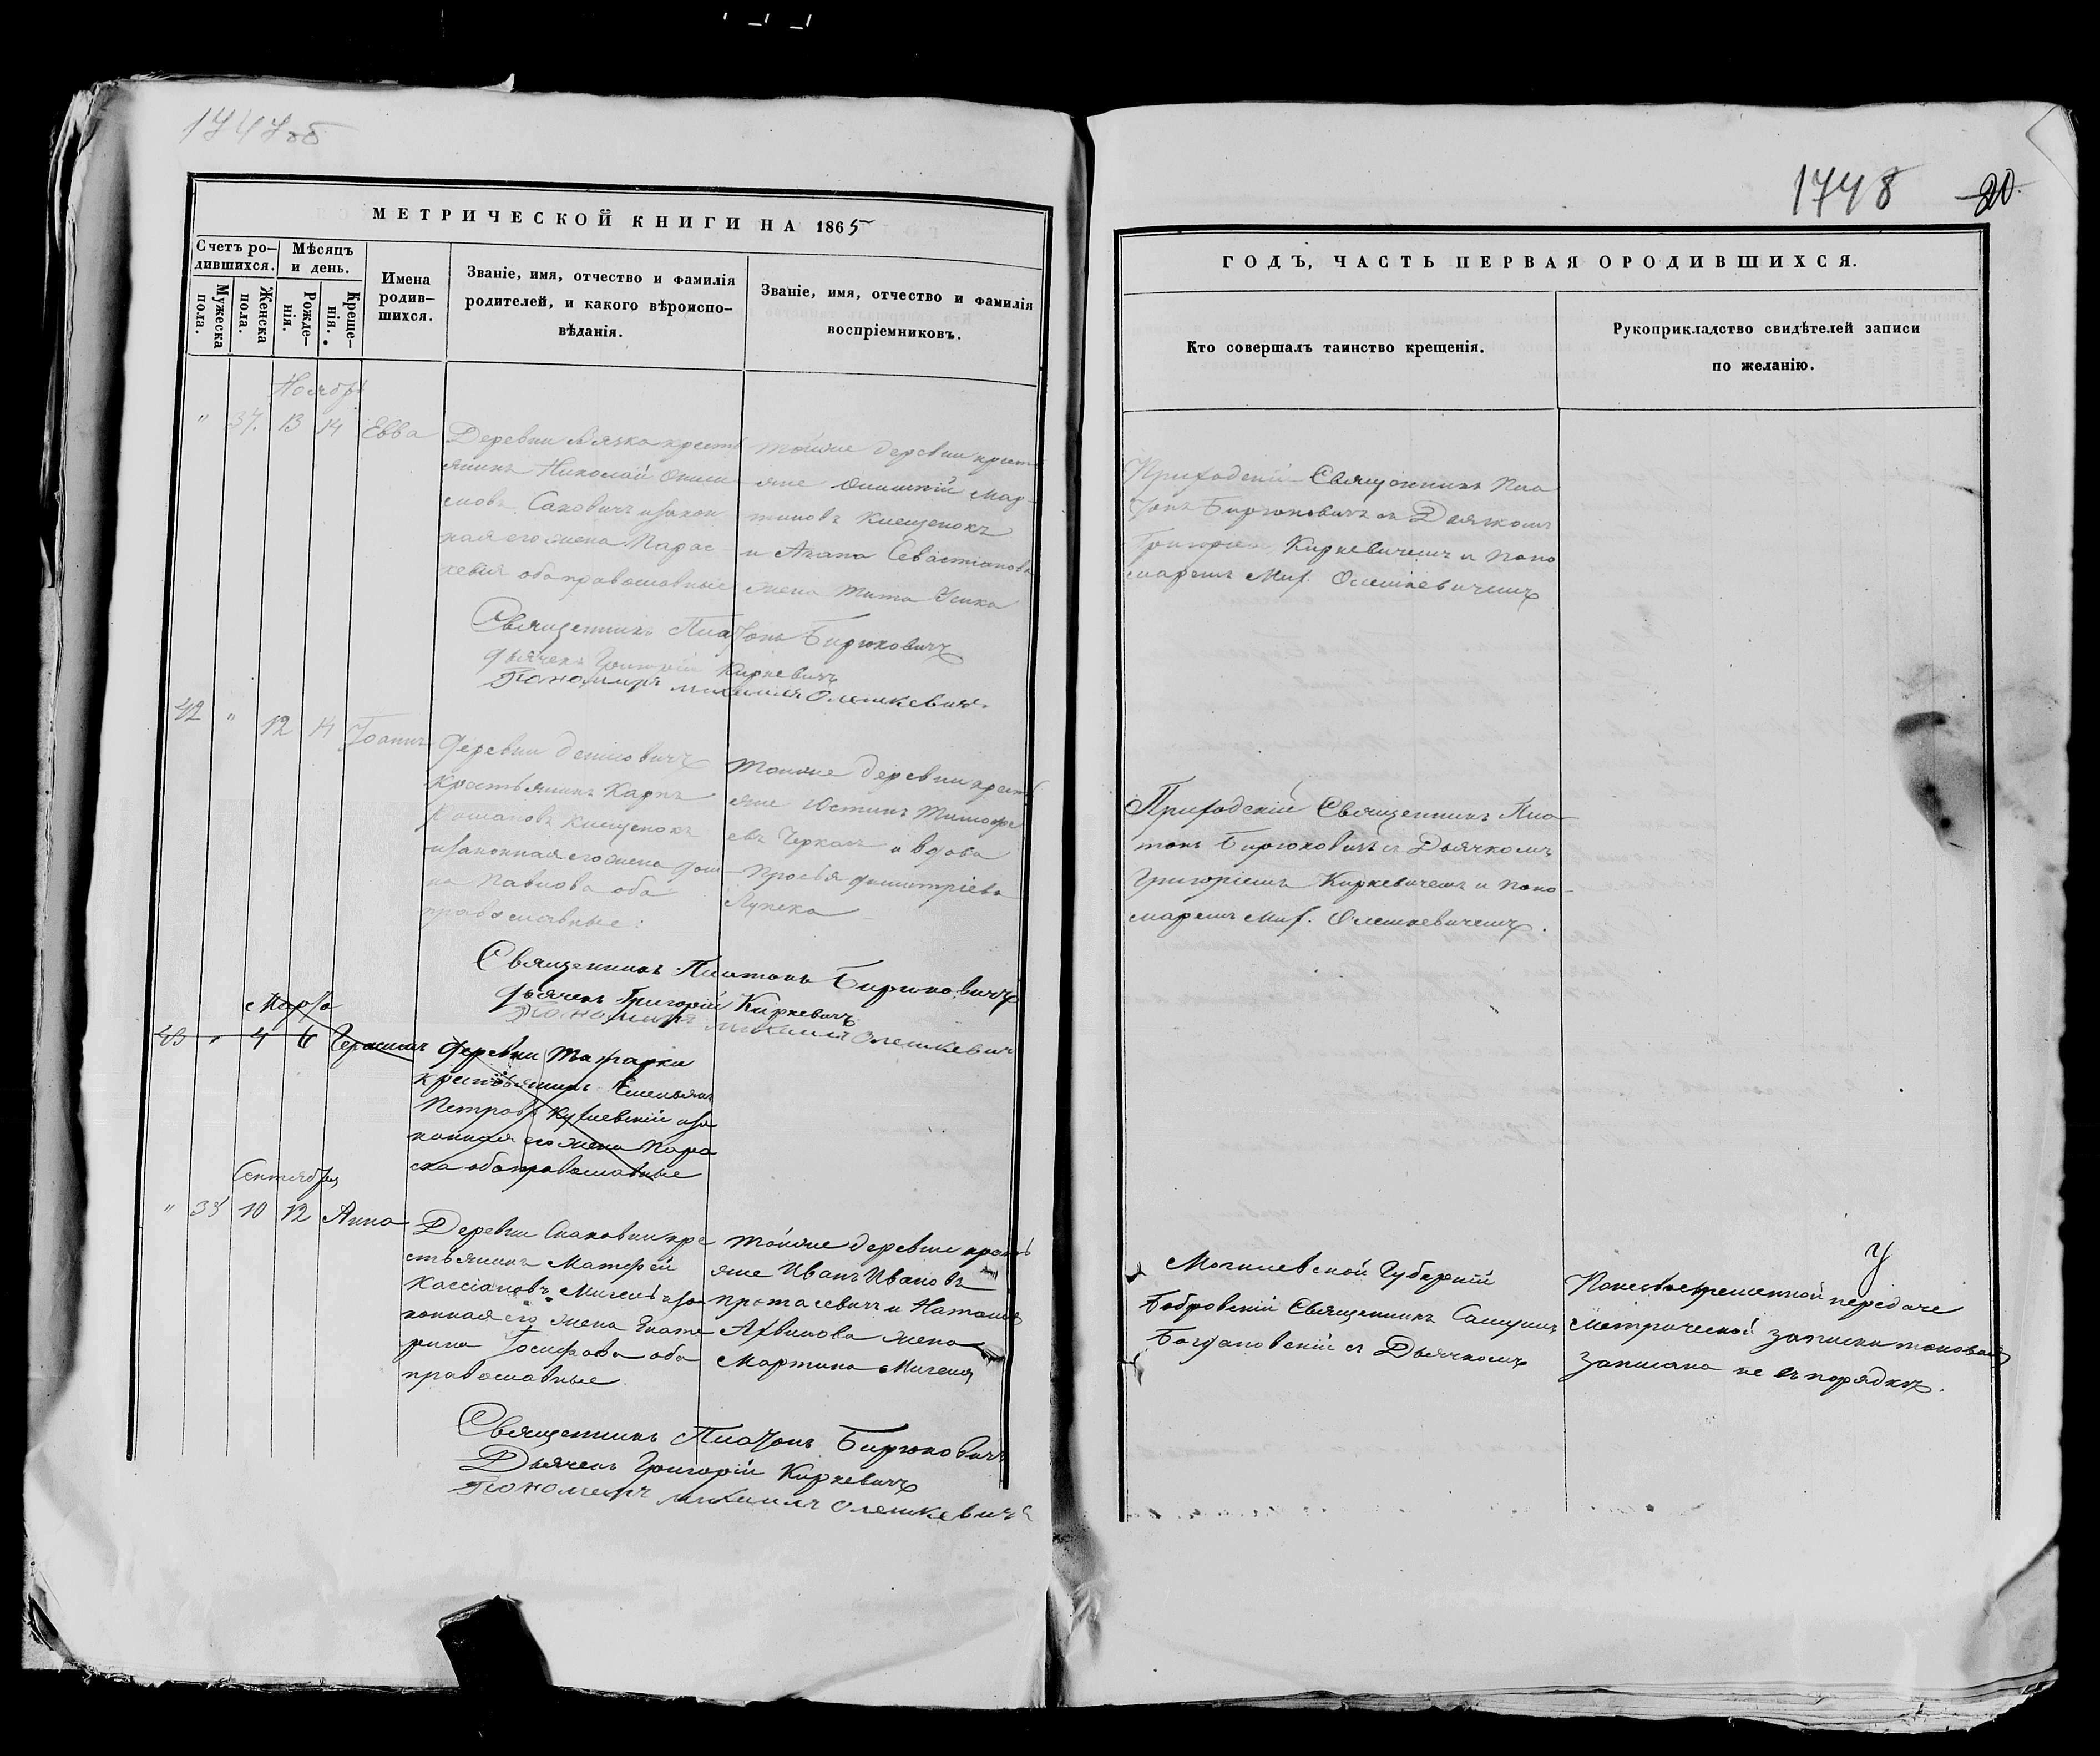 1747 об
МЕТРИЧЕСКОЙ КНИГИ НА 1865
Счетъ ро-
дившихся.
Мѣсяцъ
и день.
Мужеска
пола.
Женска
пола.
Рожде-
нія.
Креще-
нія.
Имена
родив-
шихся.
Званіе, имя, отчество и фамилія
родителей, и какого вѣроиспо-
вѣданія.
Званіе, имя, отчество и фамилія
воспріемниковъ.
Ноябрь
" 37. 13 14 Евва
Деревни крестъ
янинъ Николай Онии
мовъ Саковичъ изакон
ная его жена Парас-
кевия оба православные
Тойже деревни крест
яне Мар-
тиновъ Клещенокъ
и Агапа Севастіянова
жена Тита Усика
Священникъ Платонъ Бирюковичъ
Дьячекъ Григорій Киркевичъ
Пономарь Михаилъ Олешкевичъ
42 " 12 14 Іоаннъ
Деревни
Крестьянинъ Карпъ
Романовъ Клещенокъ
изаконная его жена Дом
на Павлова оба
православные:
Тойже деревни крестъ
яне Юстинъ Тимофе
евъ Черкасъ и вдова
Просья Димитріева
Лупека
Священникъ Платонъ Бирюковичъ
Дьячекъ Григорій Киркевичъ
Пономарь Михаилъ Олешкевичъ
Марта
43 " 4 6 Герасимъ
Деревни Татарки
крестьянинъ Емельянъ
Петровъ изa
конная его жена Пара
ска оба православные
Сентября
" 35 10 12 Анна
Деревни кре
стьянинъ Матфей
Кассіановъ изa
конная его жена Екате
рина Іосифова оба
православные
Тойже деревни крестъ
яне Иванъ Ивановъ
Протасевичъ и Наталия
жена
Мартина
Священникъ Платонъ Бирюковичъ
Дьячекъ Григорій Киркевичъ
Пономарь Михаилъ Олешкевичъ
1748 20.
ГОДЪ, ЧАСТЬ ПЕРВАЯ ОРОДИВШИХСЯ.
Кто совершалъ таинство крещенія.
Рукоприкладство свидѣтелей записи
по желанію.
Приходскій Священникъ Пла
тонъ Бирюковичъ съ Дьячкомъ
Григоріемъ Киркевичемъ и Поно
маремъ Мих. Олешкевичемъ
Приходскій Священникъ Пла-
тонъ Бирюковичъ съ Дьячкомъ
Григоріемъ Киркевичемъ и Поно-
маремъ Мих. Олешкевичемъ.
Могилевской Губерніи
Бобровскій Священникъ Самуилъ
Богдановскій съ Дьячкомъ
По несвоевременной передаче
метрической записки таковая
записана не въ порядкѣ.